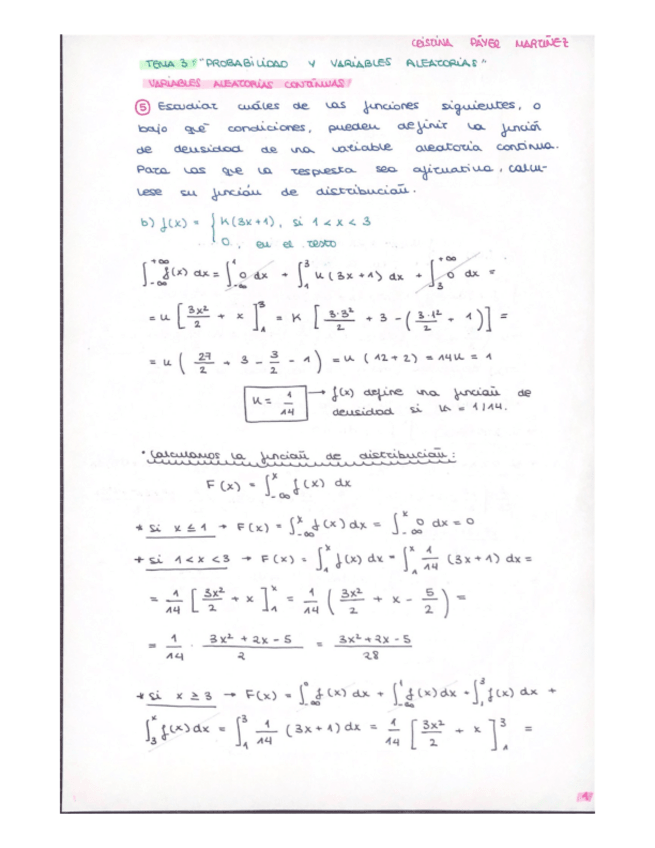 CRISTINA PÁYER MARTÍÑEZ
TEMA 3: "PROBABILIDAD Y VARIABLES ALEATORIAS"
VARIABLES ALEATORIAS CONTÍNUAS!
5 Estudiar cuáles de las funciones siguientes, o
bajo qué condiciones, pueden definir la función
de densidad de una variable aleatoria contínua.
Para las que la respuesta sea afirmativa, calcu-
lese su función de distribución.
b) f(x) = { K(3x+1), si 1 < x < 3
0, en el resto
∫_{-∞}^{+∞} f(x) dx = ∫_{-∞}^{1} 0 dx + ∫_{1}^{3} K(3x+1) dx + ∫_{3}^{+∞} 0 dx =
= K [3x²/2 + x]_{1}^{3} = K [3·3²/2 + 3 - (3·1²/2 + 1)] =
= K (27/2 + 3 - 3/2 - 1) = K (12+2) = 14K = 1
K = 1/14 → f(x) define una función de
densidad si K = 1/14.
· Calculamos la función de distribución:
F(x) = ∫_{-∞}^{x} f(x) dx
* Si x ≤ 1 → F(x) = ∫_{-∞}^{x} f(x) dx = ∫_{-∞}^{x} 0 dx = 0
* Si 1 < x < 3 → F(x) = ∫_{1}^{x} f(x) dx = ∫_{1}^{x} 1/14 (3x+1) dx =
= 1/14 [3x²/2 + x]_{1}^{x} = 1/14 (3x²/2 + x - 5/2) =
= 1/14 · (3x² + 2x - 5)/2 = (3x² + 2x - 5)/28
* Si x ≥ 3 → F(x) = ∫ f(x) dx + ∫_{-∞}^{1} f(x) dx + ∫_{1}^{3} f(x) dx +
∫_{3}^{x} f(x) dx = ∫_{1}^{3} 1/14 (3x+1) dx = 1/14 [3x²/2 + x]_{1}^{3} =
1